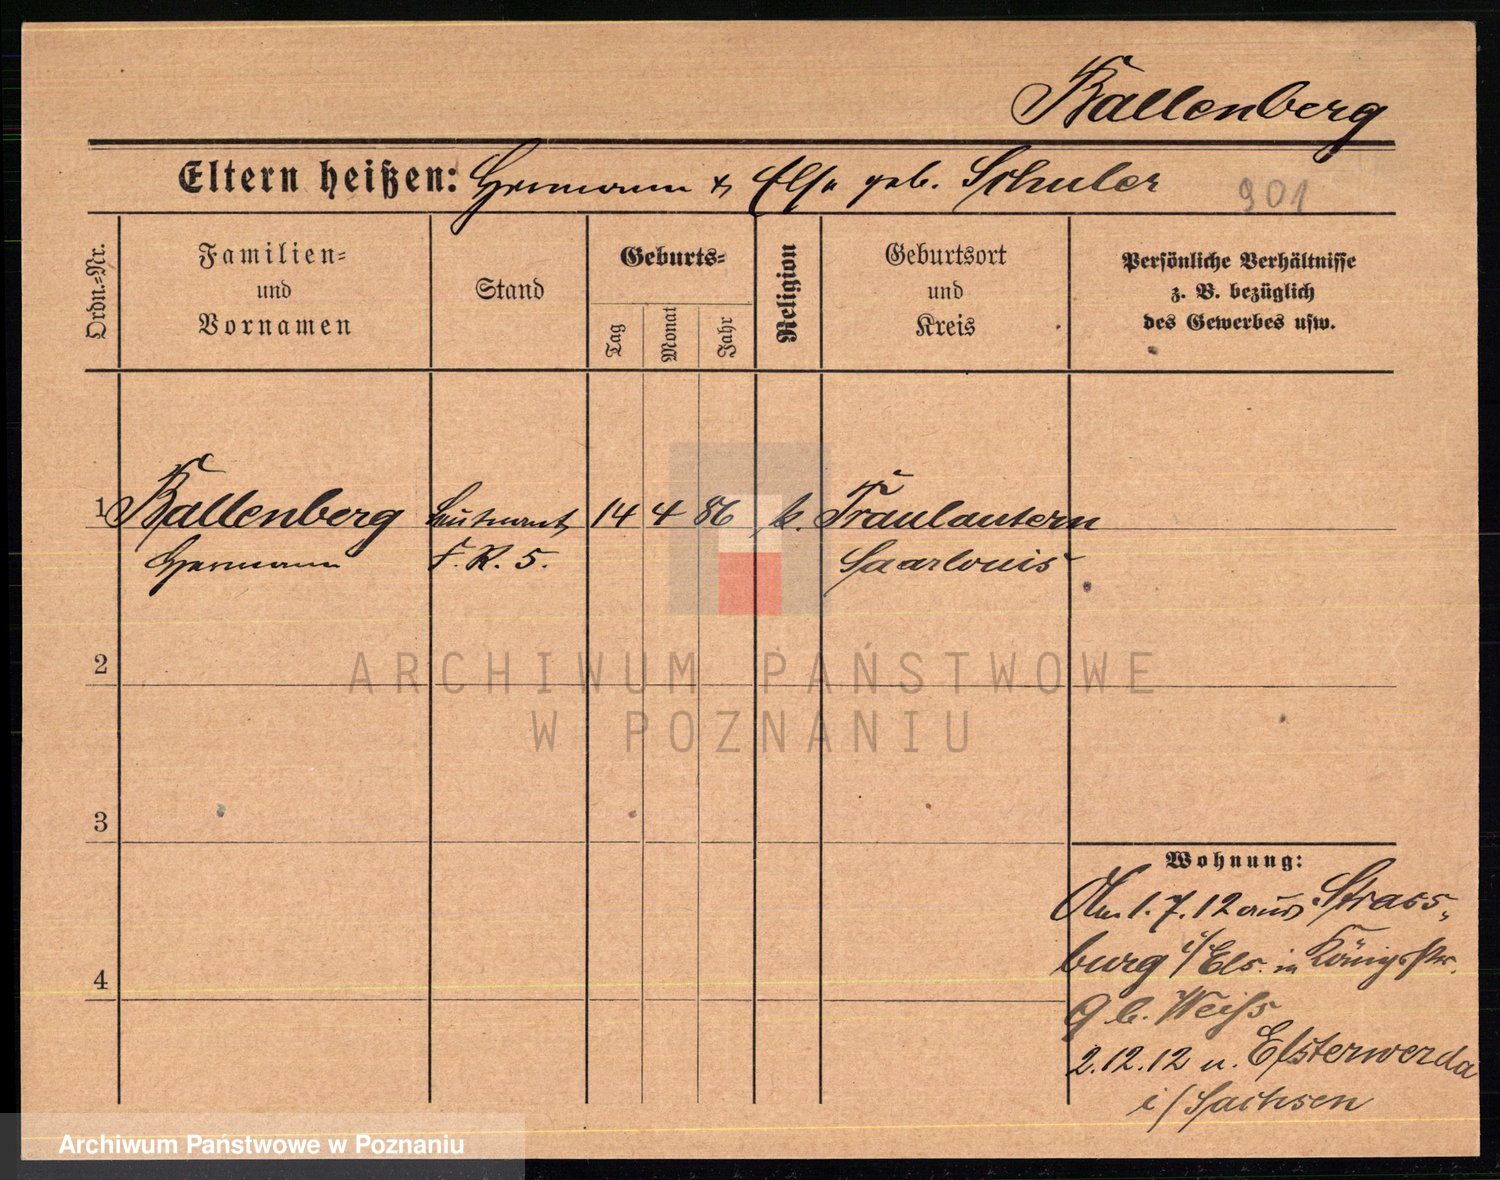 Kallenberg
Eltern heißen: Hermann & Else geb. Schuler
901
Ordn.-Nr.
Familien- und Vornamen
Stand
Geburts-
Tag
Monat
Jahr
Religion
Geburtsort und Kreis
Persönliche Verhältnisse
z. B. bezüglich
des Gewerbes usw.
1 Kallenberg Leutnant 14 4 86 k. Fraulautern
Hermann F. R. 5. Saarlouis
2
3
4
Wohnung:
Am 1.7.12 aus Strass-
burg i/Els. in Königstr.
9 b. Weiss
2.12.12 n. Elsterwerda
i/Sachsen
ARCHIWUM PAŃSTWOWE
W POZNANIU
Archiwum Państwowe w Poznaniu